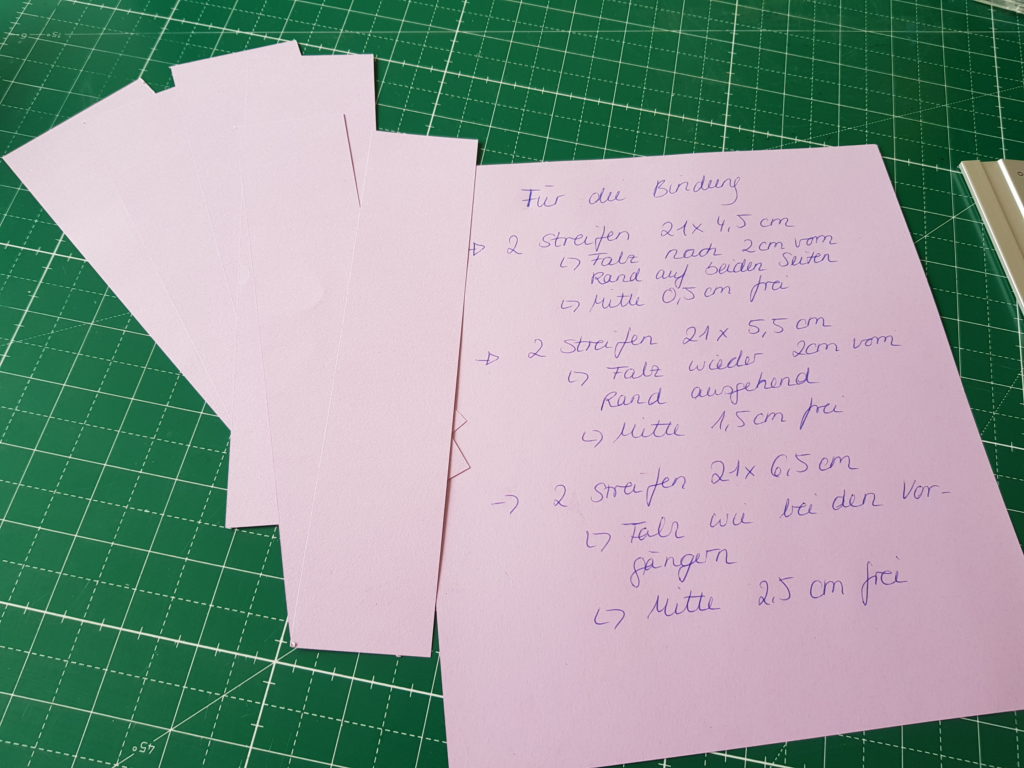 Für die Bindung
→ 2 Streifen 21x 4,5 cm
↳ Falz nach 2cm vom
Rand auf beiden Seiten
↳ Mitte 0,5 cm frei
→ 2 Streifen 21x 5,5 cm
↳ Falz wieder 2cm vom
Rand ausgehend
↳ Mitte 1,5 cm frei
→ 2 Streifen 21x 6,5 cm
↳ Falz wie bei den Vor-
gängern
↳ Mitte 2,5 cm frei
45°